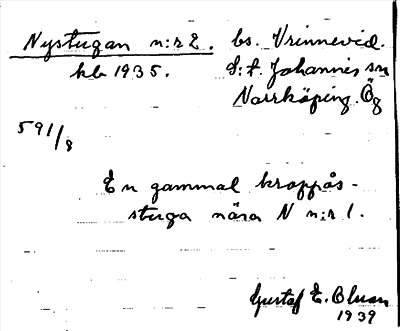 Nystugan n:r 2. bs. Vrinnevid.
kb 1935. S:t Johannis sn
Norrköping. Ög
591/8
En gammal kroppås-
stuga nära N n:r 1.
Gustaf E. Olsson
1939